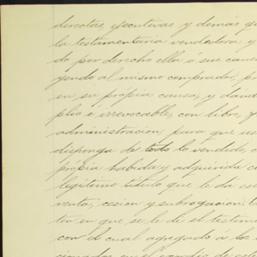 directas, ejecutivas y demas que
la testamentaria vendedora y
do por derecho ella o sus caus
yendo al mismo comprador, pr
en su propia causa, y dand
plio é irrevocable, con libre, f
administracion, para que us
disponga de todo lo vendido, c
propia habida y adquirida co
legítimo título que le da es
venta, cesion y subrogacion. Co
ta en que se le dé el testim
con el cual agregado á los